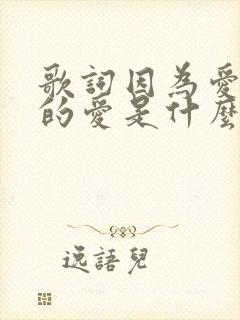 歌詞因為愛
的愛是什麼
逸語兒